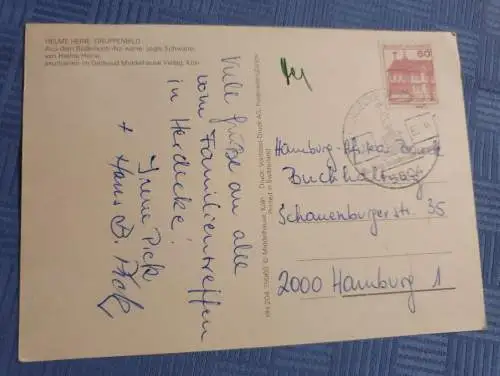 HELME HEINE: GRUPPENBILD
Aus dem Bilderbuch: Na warte, sagte Schwarte,
von Helme Heine,
erschienen im Gertraud Middelhauve Verlag, Köln
Viele Grüße an alle
vom Familientreffen
in Herdecke!
Irene Pick
+ Hans D. Pick
© Middelhauve, Köln
Printed in Switzerland
60
Hamburg-Afrika
Buchhaltung
Schauenburgerstr. 35
2000 Hamburg 1